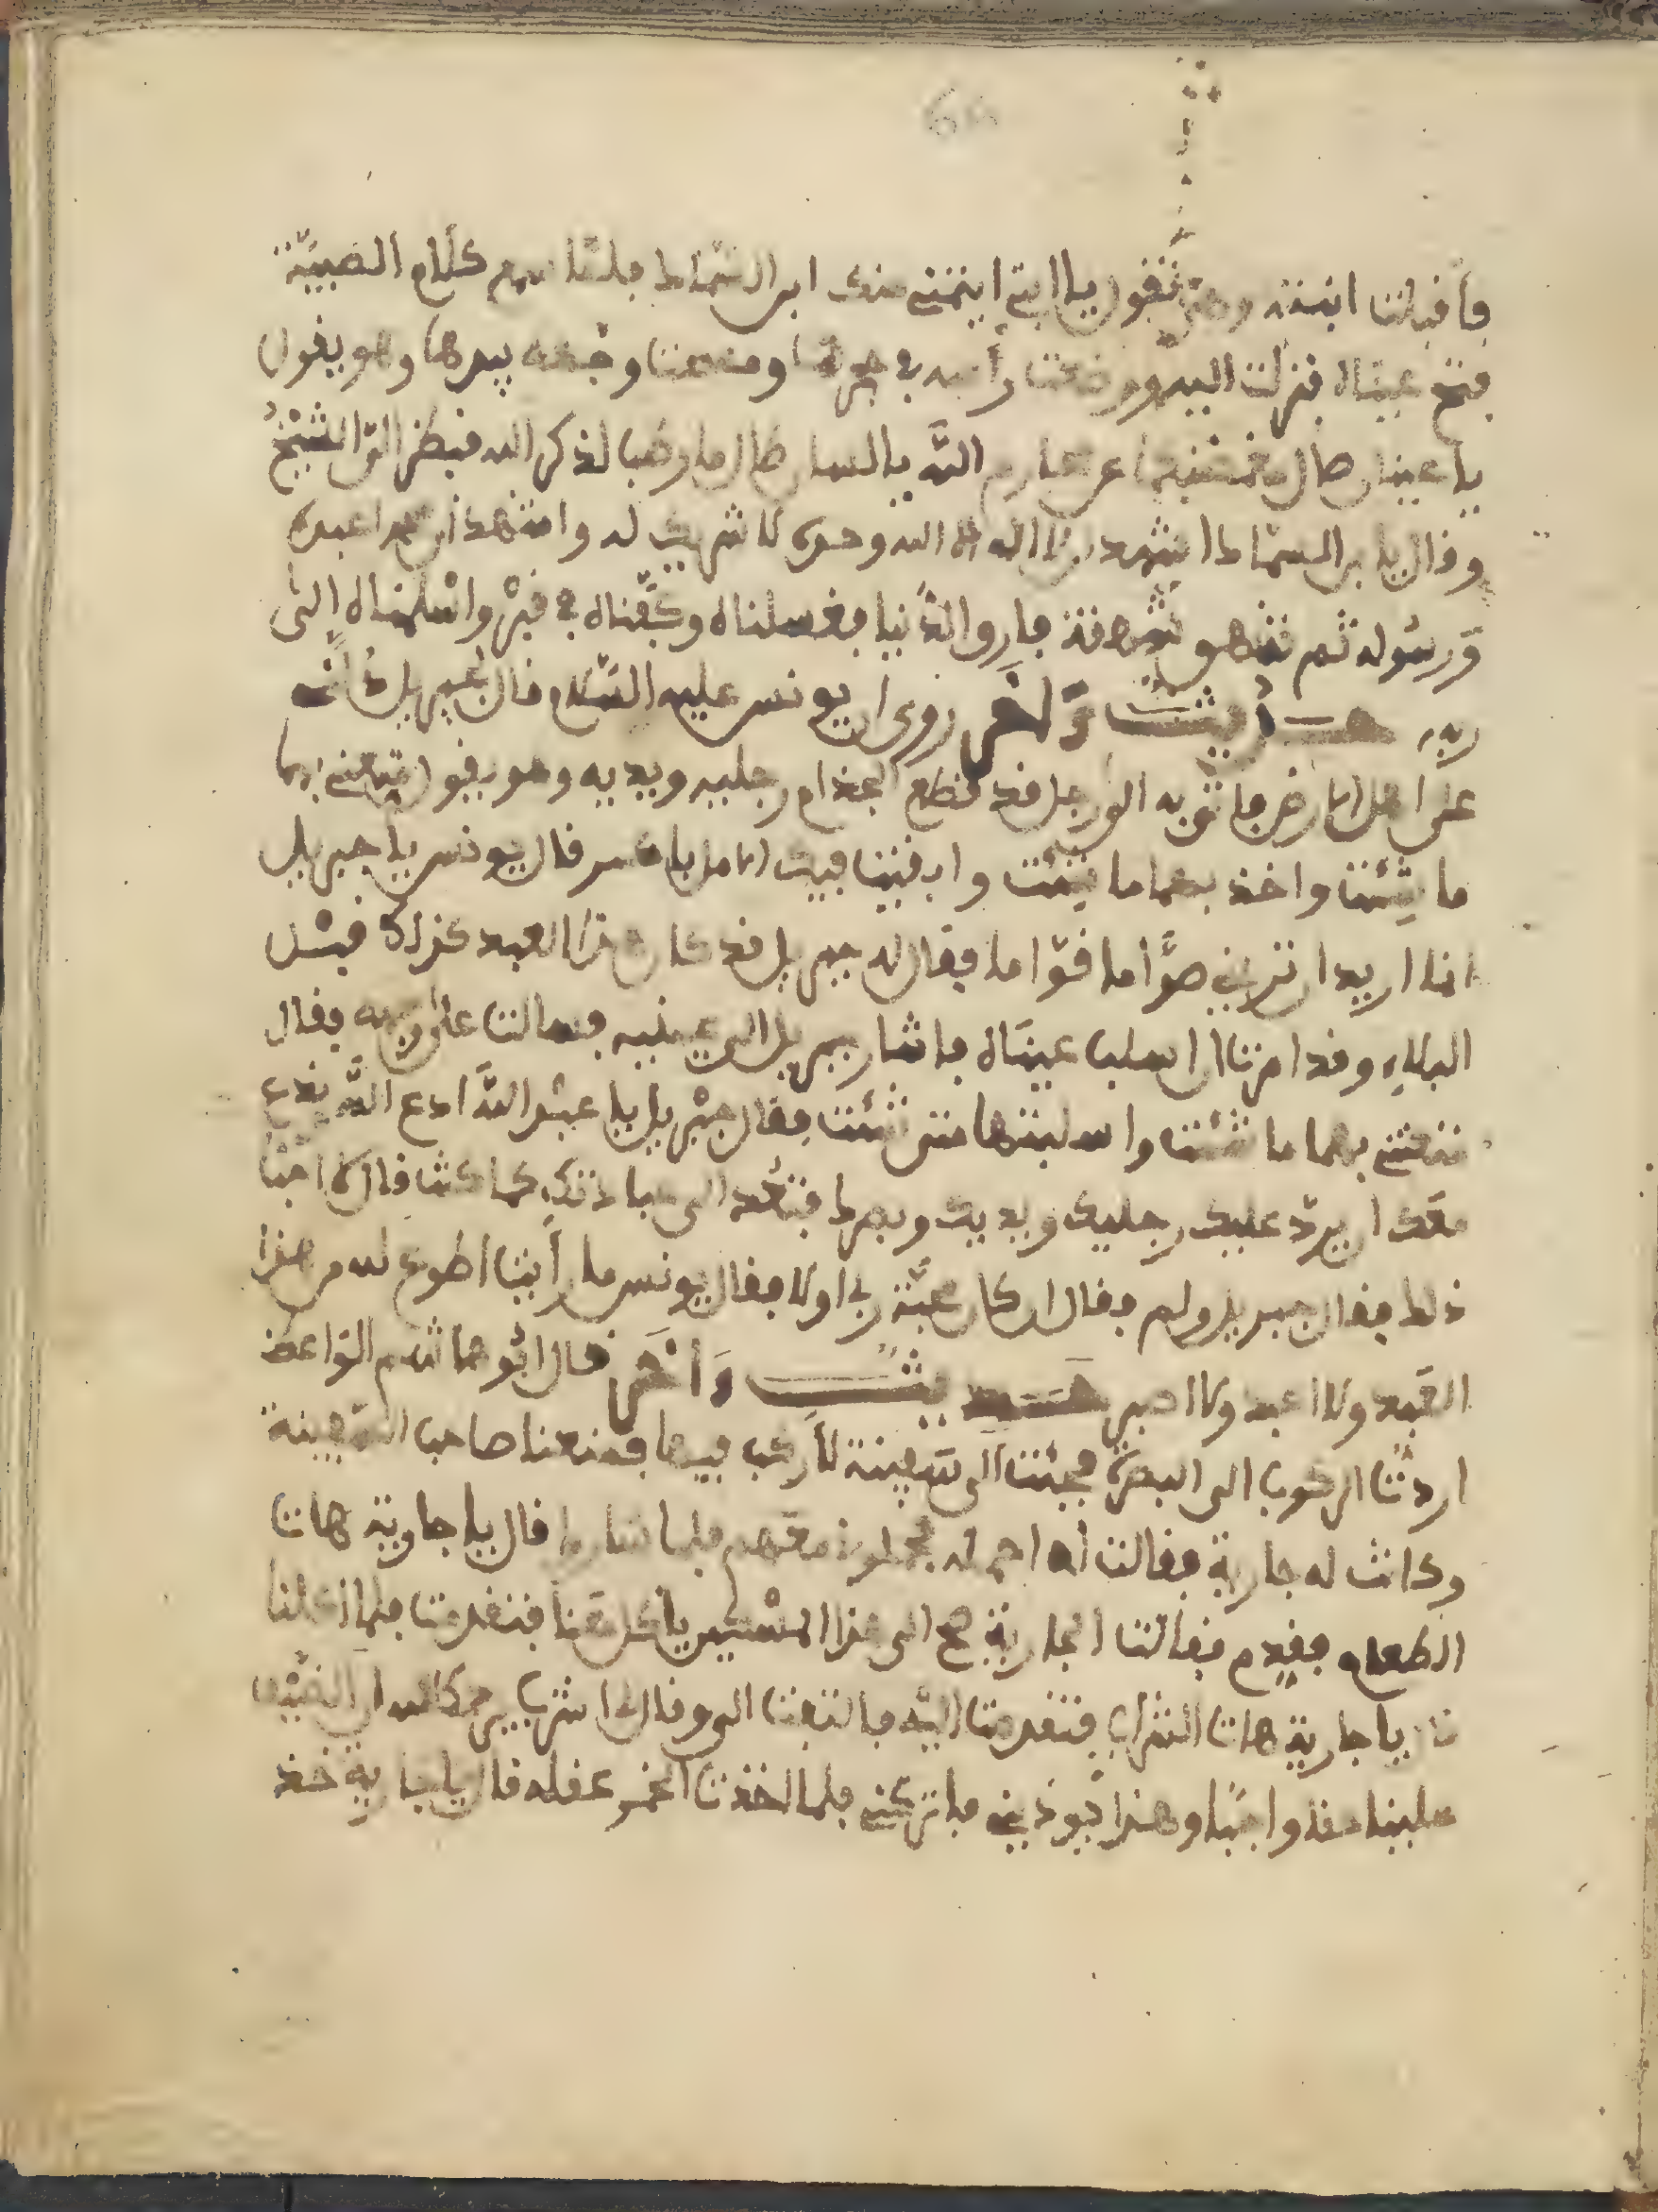 66
فأقبلت ابنته وهي تقول يا ابتي ايتمني منك ابن السماط فلما سمع كلام الصبية
فتح عيناه فنزلت اليه ووضعت رأسه في حجرها ومسحت وجهه بيدها وهو يقول
يا عينان طال ما غمضتهما عن محارم الله يا لسان طال ما رطب لذكر الله فنظر الي الشيخ
وقال يا بن السماط اشهد ان لا اله الا الله وحده لا شريك له واشهد ان محمدا عبده
ورسوله ثم شهق شهقة فارق الدنيا فغسلناه وكفناه في قبر واسلمناه الى
ربه حديث وآخر روي ان يونس عليه السلام قال لجبريل
على اهل الارض فاتى به الى رجل قد قطع الجذام رجليه ويديه وهو يقول متعتني بهما
ما شئت واخذ بهما ما شئت وابقيت فيك الامل قال يونس يا جبريل
انا اريد ان تريني صواما قواما فقال له جبريل قد كان هذا العبد كذلك قبل
البلاء وقد امرنا ان اسلب عيناه فاشار جبريل الى عينيه فسالت على وجهه فقال
متعتني بهما ما شئت واسلبتها متى شئت فقال جبريل يا عبد الله ادع الله ندع
معك ان يرد عليك رجليك ويديك وبصرك فتعد الى عبادتك كما كنت قال لا احب
ذلك فقال جبريل ولم فقال ان كان محبة ربي اولا فقال يونس ما رأيت اطوع لله من هذا
العبد ولا اعبد ولا اصبر حديث وآخر قال ابو هاشم الواعظ
اردت الركوب الى البصرة فجئت الى سفينة لأركب فيها فمنعنا صاحب السفينة
وكانت له جارية فقالت له احمله معهم فلما سار قال يا جارية هات
الطعام فقدم فقالت الجارية الى هذا المسكين يأكل معنا فتقدمت فلما اكلنا
قال يا جارية هات الشراب فتقدمت اليه فالتفت الي وقال اشرب يرحمك الله ان الضيف
علينا حقه واجبا وهذا يوذيني فاتركني فلما اخذت الخمر عقله قال يا جارية خذ